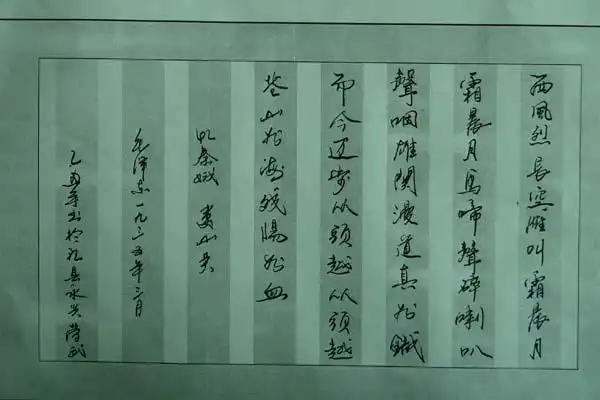 西風烈長空雁叫霜晨月
霜晨月馬啼聲碎喇叭
聲咽雄関漫道真如鐵
而今迈步从頭越从頭越
苍山如海殘陽如血
忆秦娥 娄山关
毛泽东一九三五年二月
乙丑年书於礼县永兴